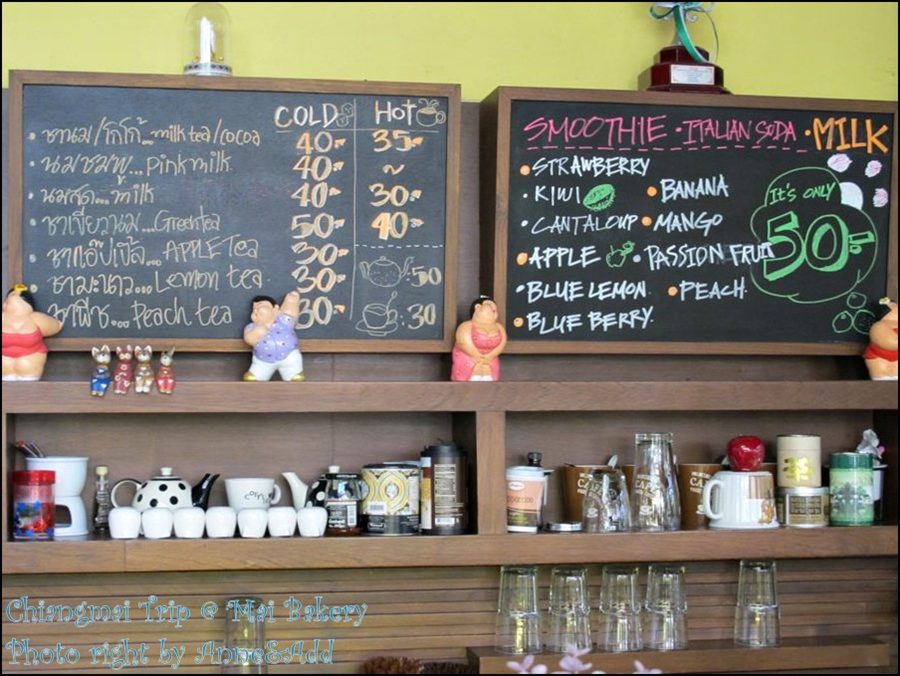 COLD HOT
• ชานม/โกโก้... milk tea/cocoa 40.- 35.-
• นมชมพู... pink milk 40.- ~
• นมสด... milk 40.- 30.-
• ชาเขียวนม... Greentea 50.- 40.-
• ชาแอ๊ปเปิ้ล... APPLE Tea 30.-
• ชามะนาว... Lemon tea 30.- : 50
ชาพีช... Peach tea 30.- : 30
SMOOTHIE • ITALIAN SODA • MILK
• STRAWBERRY
• KIWI • BANANA
• CANTALOUP • MANGO
• APPLE • PASSION FRUIT
• BLUE LEMON • PEACH
• BLUE BERRY.
IT'S ONLY
50.-
Chiangmai Trip @ Nai Bakery
Photo right by Anne&Add